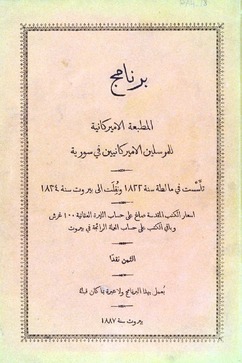 برنامج
المطبعة الاميركانية
للمرسلين الاميركانيين في سورية
تأسست في مالطة سنة ١٨٢٢ ونُقلت الى بيروت سنة ١٨٣٤
اسعار الكتب المقدسة صاغ على حساب الليرة العثمانية ١٠٠ غرش
وباقي الكتب على حساب العملة الرائجة في بيروت
الثمن نقدًا
يُعمل بهذا البرنامج ولا عبرة بما كان قبلهُ
بيروت سنة ١٨٨٧